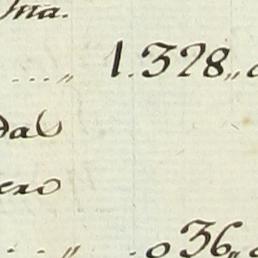 ....„ 1.328„
dal
ero
. . . „ . 036„